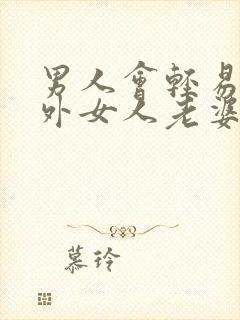 男人會輕易
外女人老婆
慕玲